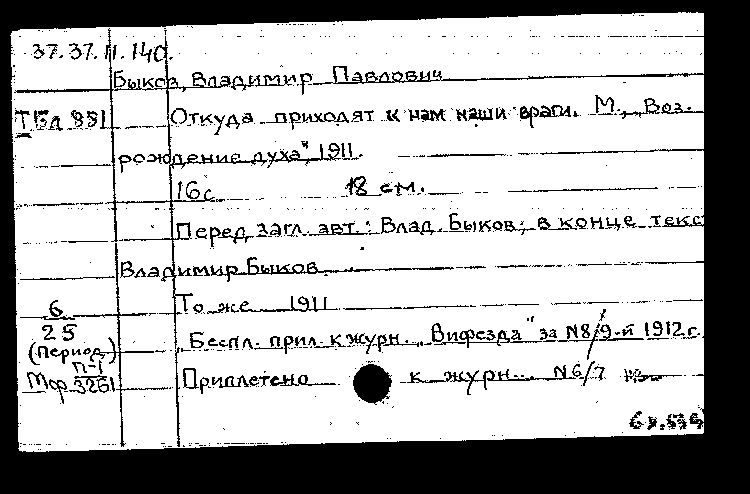 37.37.11.140.
Быков, Владимир Павлович
ТБл 851 Откуда приходят к нам наши враги. М., „Воз.
рождение духа", 1911.
16 с. 18 см.
Перед загл. авт.: Влад. Быков; в конце текс
Владимир Быков.
6 То же 1911
25 „Беспл. прил. к журн. „Вифезда" за N8/9-й 1912 г.
(Период.)
Мф П-1 Приплетено к журн... N6/7
3261